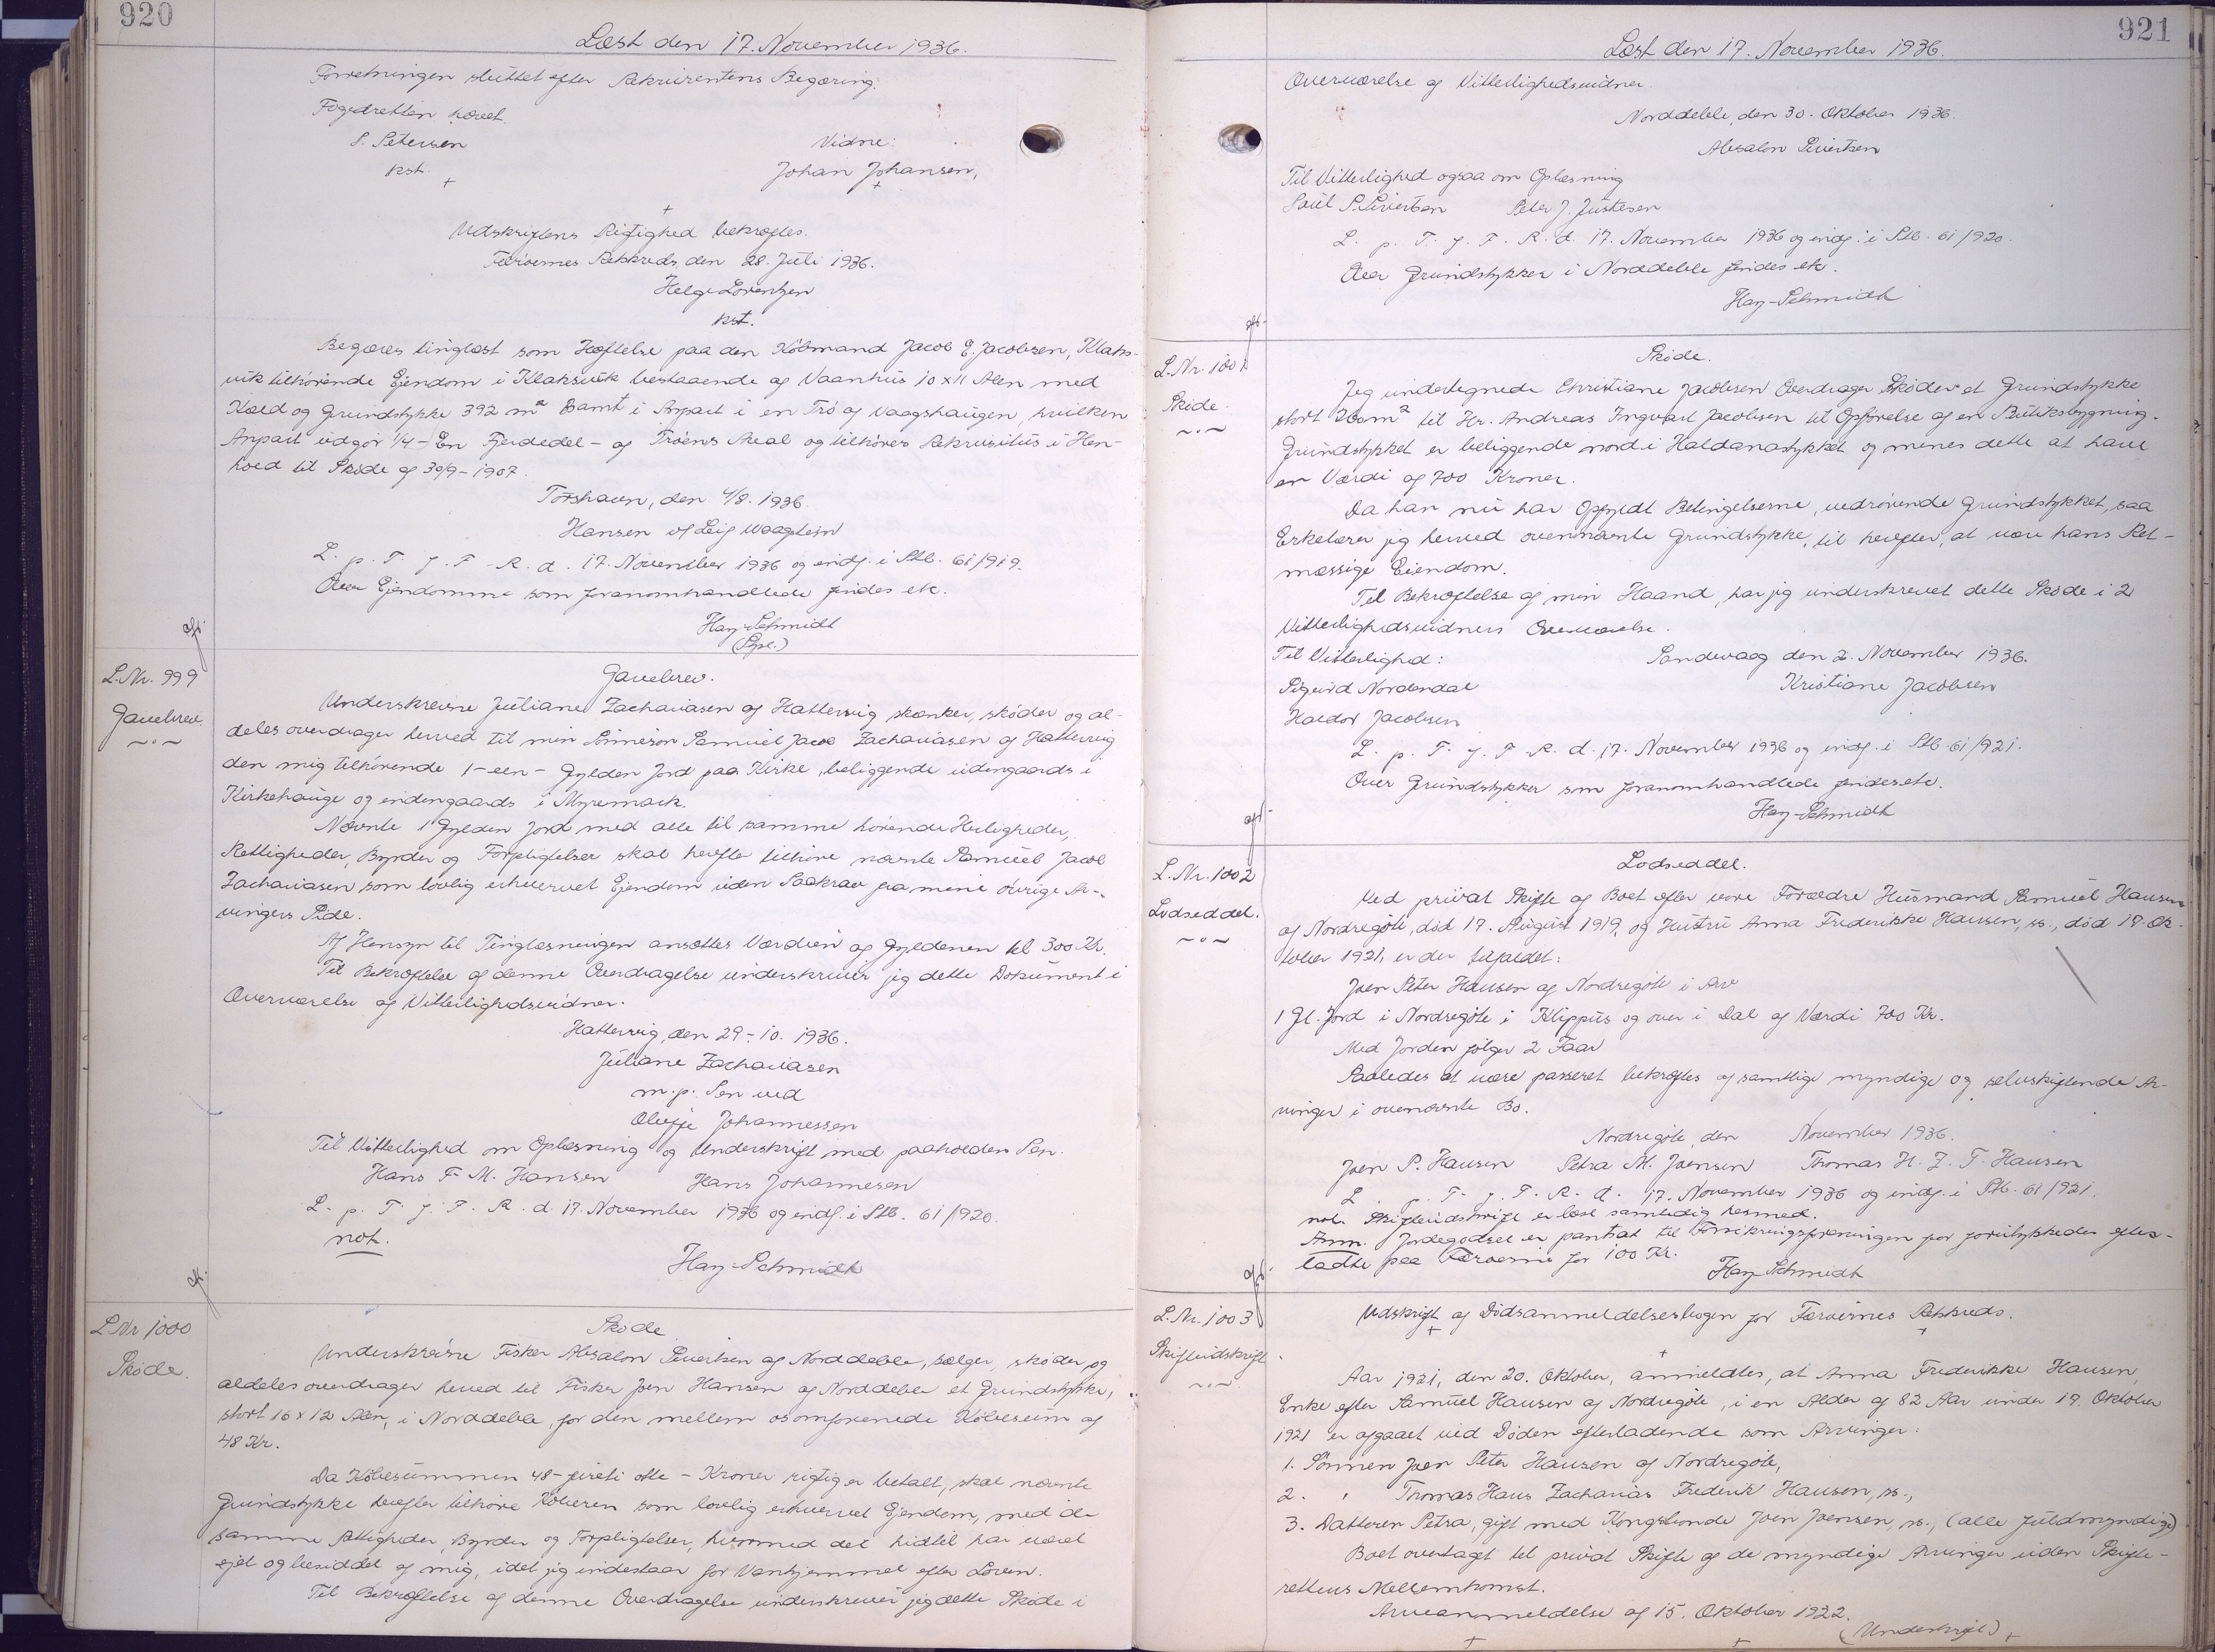 920
Læst den 17. November 1936.
Forretningen sluttet efter Rekvirentens Begæring.
Fogedretten hævet.
S. Petersen
Vidne:
kst.
Johan Johansen,
+
+
+
Udskriftens Rigtighed bekræftes.
Færøernes Retskreds, den 28. Juli 1936.
Helge Lorentzen
kst.
Begæres tinglæst som Hæftelse paa den Købmand Jacob E. Jacobsen, Klaks-
vik tilhørende Ejendom i Klaksvik bestaaende af Vaanhus 10 x 11 Alen med
Kæld og Grundstykke 392 m² samt i Anpart i en Trø af Vaagshaugen, hvilken
Anpart udgør 1/4 - En Fjerdedel - af Trøens Areal og tilhører Rekvisitus i Hen-
hold til Skøde af 30/9 - 1907.
Torshavn, den 4/8. 1936.
Hansen vf Leif Waagstein
L. p. T. f. F. R. d. 17. November 1936 og indf. i Sk.B. 61/919.
Over Ejendomme som foranomhandlede findes etc.
Hay-Schmidt
(Sgn.)
L. Nr. 999
Gavebrev.
Gavebrev.
Underskrevne Juliane Zachariasen af Hattervig skænker, skøder og al-
deles overdrager herved til min Sønnesøn Samuel Jacob Zachariasen af Hattervig
den mig tilhørende 1 - een - Gylden Jord paa Kirke, beliggende udengaards i
Kirkehauge og indengaards i Myremark.
Nævnte 1 Gylden Jord med alle til samme hørende Herligheder,
Rettigheder, Byrder og Forpligtelser skal herefter tilhøre nævnte Samuel Jacob
Zachariasen som lovlig erhvervet Ejendom uden Saakrav fra mine øvrige Ar-
vingers Side.
Af Hensyn til Tinglæsningen ansættes Værdien af Gyldenen til 300 Kr.
Til Bekræftelse af denne Overdragelse underskriver jeg dette Dokument i
Overværelse af Vitterlighedsvidner.
Hattervig, den 29 - 10. 1936.
Juliane Zachariasen
m. p. Pen ved
Oluffe Johannessen
Til Vitterlighed om Oplæsning og Underskrift med paaholden Pen.
Hans F. M. Hansen Hans Johannesen
L. p. T. f. F. R. d. 17. November 1936 og indf. i Sk.B. 61/920.
not.
Hay-Schmidt
L Nr 1000
Skøde.
Skøde
Underskrevne Fisker Absalon Sivertsen af Norddeble, sælger, skøder og
aldeles overdrager herved til Fisker Joen Hansen af Norddeble et Grundstykke,
stort 16 x 12 Alen, i Norddeble, for den mellem os omforenede Købesum af
48 Kr.
Da Købesummen 48 - fireti otte - Kroner rigtig er betalt, skal nævnte
Grundstykke herefter tilhøre Køberen som lovlig erhvervet Ejendom, med de
samme Rettigheder, Byrder og Forpligtelser, hvormed det hidtil har været
ejet og besiddet af mig, idet jeg indestaar for Vanhjemmel efter Loven.
Til Bekræftelse af denne Overdragelse underskriver jeg dette Skøde i
921
Læst den 17. November 1936.
Overværelse af Vitterlighedsvidner.
Norddeble, den 30. Oktober 1936.
Absalon Sivertsen
Til Vitterlighed ogsaa om Oplæsning
Poul S. Sivertsen Peter J. Justesen
L. p. T. f. F. R. d. 17. November 1936 og indf. i Sk.B. 61/920.
Over Grundstykker i Norddeble findes etc.
Hay-Schmidt
L. Nr. 1001
Skøde.
Skøde.
Jeg undertegnede Christiane Jacobsen Overdrager Skøder et Grundstykke
stort 200 m² til Hr. Andreas Ingvart Jacobsen til Opførelse af en Butiksbygning.
Grundstykket er beliggende nord i Haldanastykket og menes dette at have
en Værdi af 700 Kroner.
Da han nu har Opfyldt Betingelserne, vedrørende Grundstykket, saa
Erkelærer jeg herved ovennævnte Grundstykke, til herefter, at være hans Ret-
mæssige Eiendom.
Til Bekræftelse af min Haand, har jeg underskrevet dette Skøde i 2
Vitterlighedsvidners Overværelse.
Til Vitterlighed:
Sandevaag den 2. November 1936.
Sigurd Nordendal
Kristiane Jacobsen
Haldor Jacobsen
L. p. T. f. F. R. d. 17. November 1936 og indf. i Sk.B. 61/921.
Over Grundstykker som foranomhandlede findes etc.
Hay-Schmidt
L. Nr. 1002
Lodseddel.
Lodseddel.
Ved privat Skifte af Boet efter vore Forældre Husmand Samuel Hansen
af Nordregöte, död 17. August 1919, og Hustru Anna Frederikke Hansen, ss., död 19. Ok-
tober 1921, er der tilfaldet:
Joen Peter Hansen af Nordregöte i Arv
1 Gl. Jord i Nordregöte i Klippus og over i Dal af Værdi 700 Kr.
Med Jorden følger 2 Faar
Saaledes at være passeret bekræftes af samtlige myndige og selvskiftende Ar-
vinger i ovennævnte Bo.
Nordregöte, den November 1936.
Joen P. Hansen Petra M. Joensen Thomas H. Z. F. Hansen
L. p. T. f. F. R. d. 17. November 1936 og indf. i Sk.B. 61/921.
not. Skifteudskrift er læst samtidig hermed.
Anm. Jordegodset er pantsat til Forsikringsforeningen for forulykkedes efter-
ladte paa Færøerne for 100 Kr.
Hay-Schmidt
L. Nr. 1003
Skifteudskrift
Udskrift af Dødsanmeldelsesbogen for Færøernes Retskreds.
+
+
+
Aar 1921, den 20. Oktober, anmeldtes, at Anna Frederikke Hansen,
Enke efter Samuel Hansen af Nordregöte, i en Alder af 82 Aar under 19. Oktober
1921 er afgaaet ved Døden efterladende som Arvinger:
1. Sønnen Joen Peter Hansen af Nordregöte,
2. " Thomas Hans Zacharias Frederik Hansen, ss.,
3. Datteren Petra, gift med Kongsbonde Joen Joensen, ss., (alle fuldmyndige)
Boet overtaget til privat Skifte af de myndige Arvinger uden Skifte-
rettens Mellemkomst.
Arveanmeldelse af 15. Oktober 1922.
(Underskrift)
+
+
+